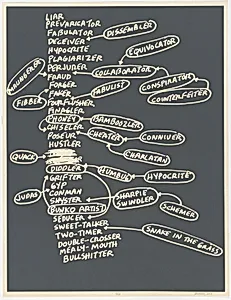 LIAR
PREVARICATOR
FABULATOR
DISSEMBLER
DECEIVER
HYPOCRITE
EQUIVOCATOR
PLAGIARIZER
PERJURER
COLLABORATOR
FRAUD
CONSPIRATOR
FORGER
FABULIST
FAKER
COUNTERFEITER
FIBBER
FOURFLUSHER
FINAGLER
PHONEY
BAMBOOZLER
CHISELER
POSEUR
CHEATER
CONNIVER
HUSTLER
QUACK
CHARLATAN
DIDDLER
HUMBUG
HYPOCRITE
GRIFTER
GYP
CONMAN
SHARPIE
JUDAS
SHYSTER
SWINDLER
SCHEMER
BUNKO ARTIST
SEDUCER
SWEET-TALKER
SNAKE IN THE GRASS
TWO-TIMER
DOUBLE-CROSSER
MEALY-MOUTH
BULLSHITTER